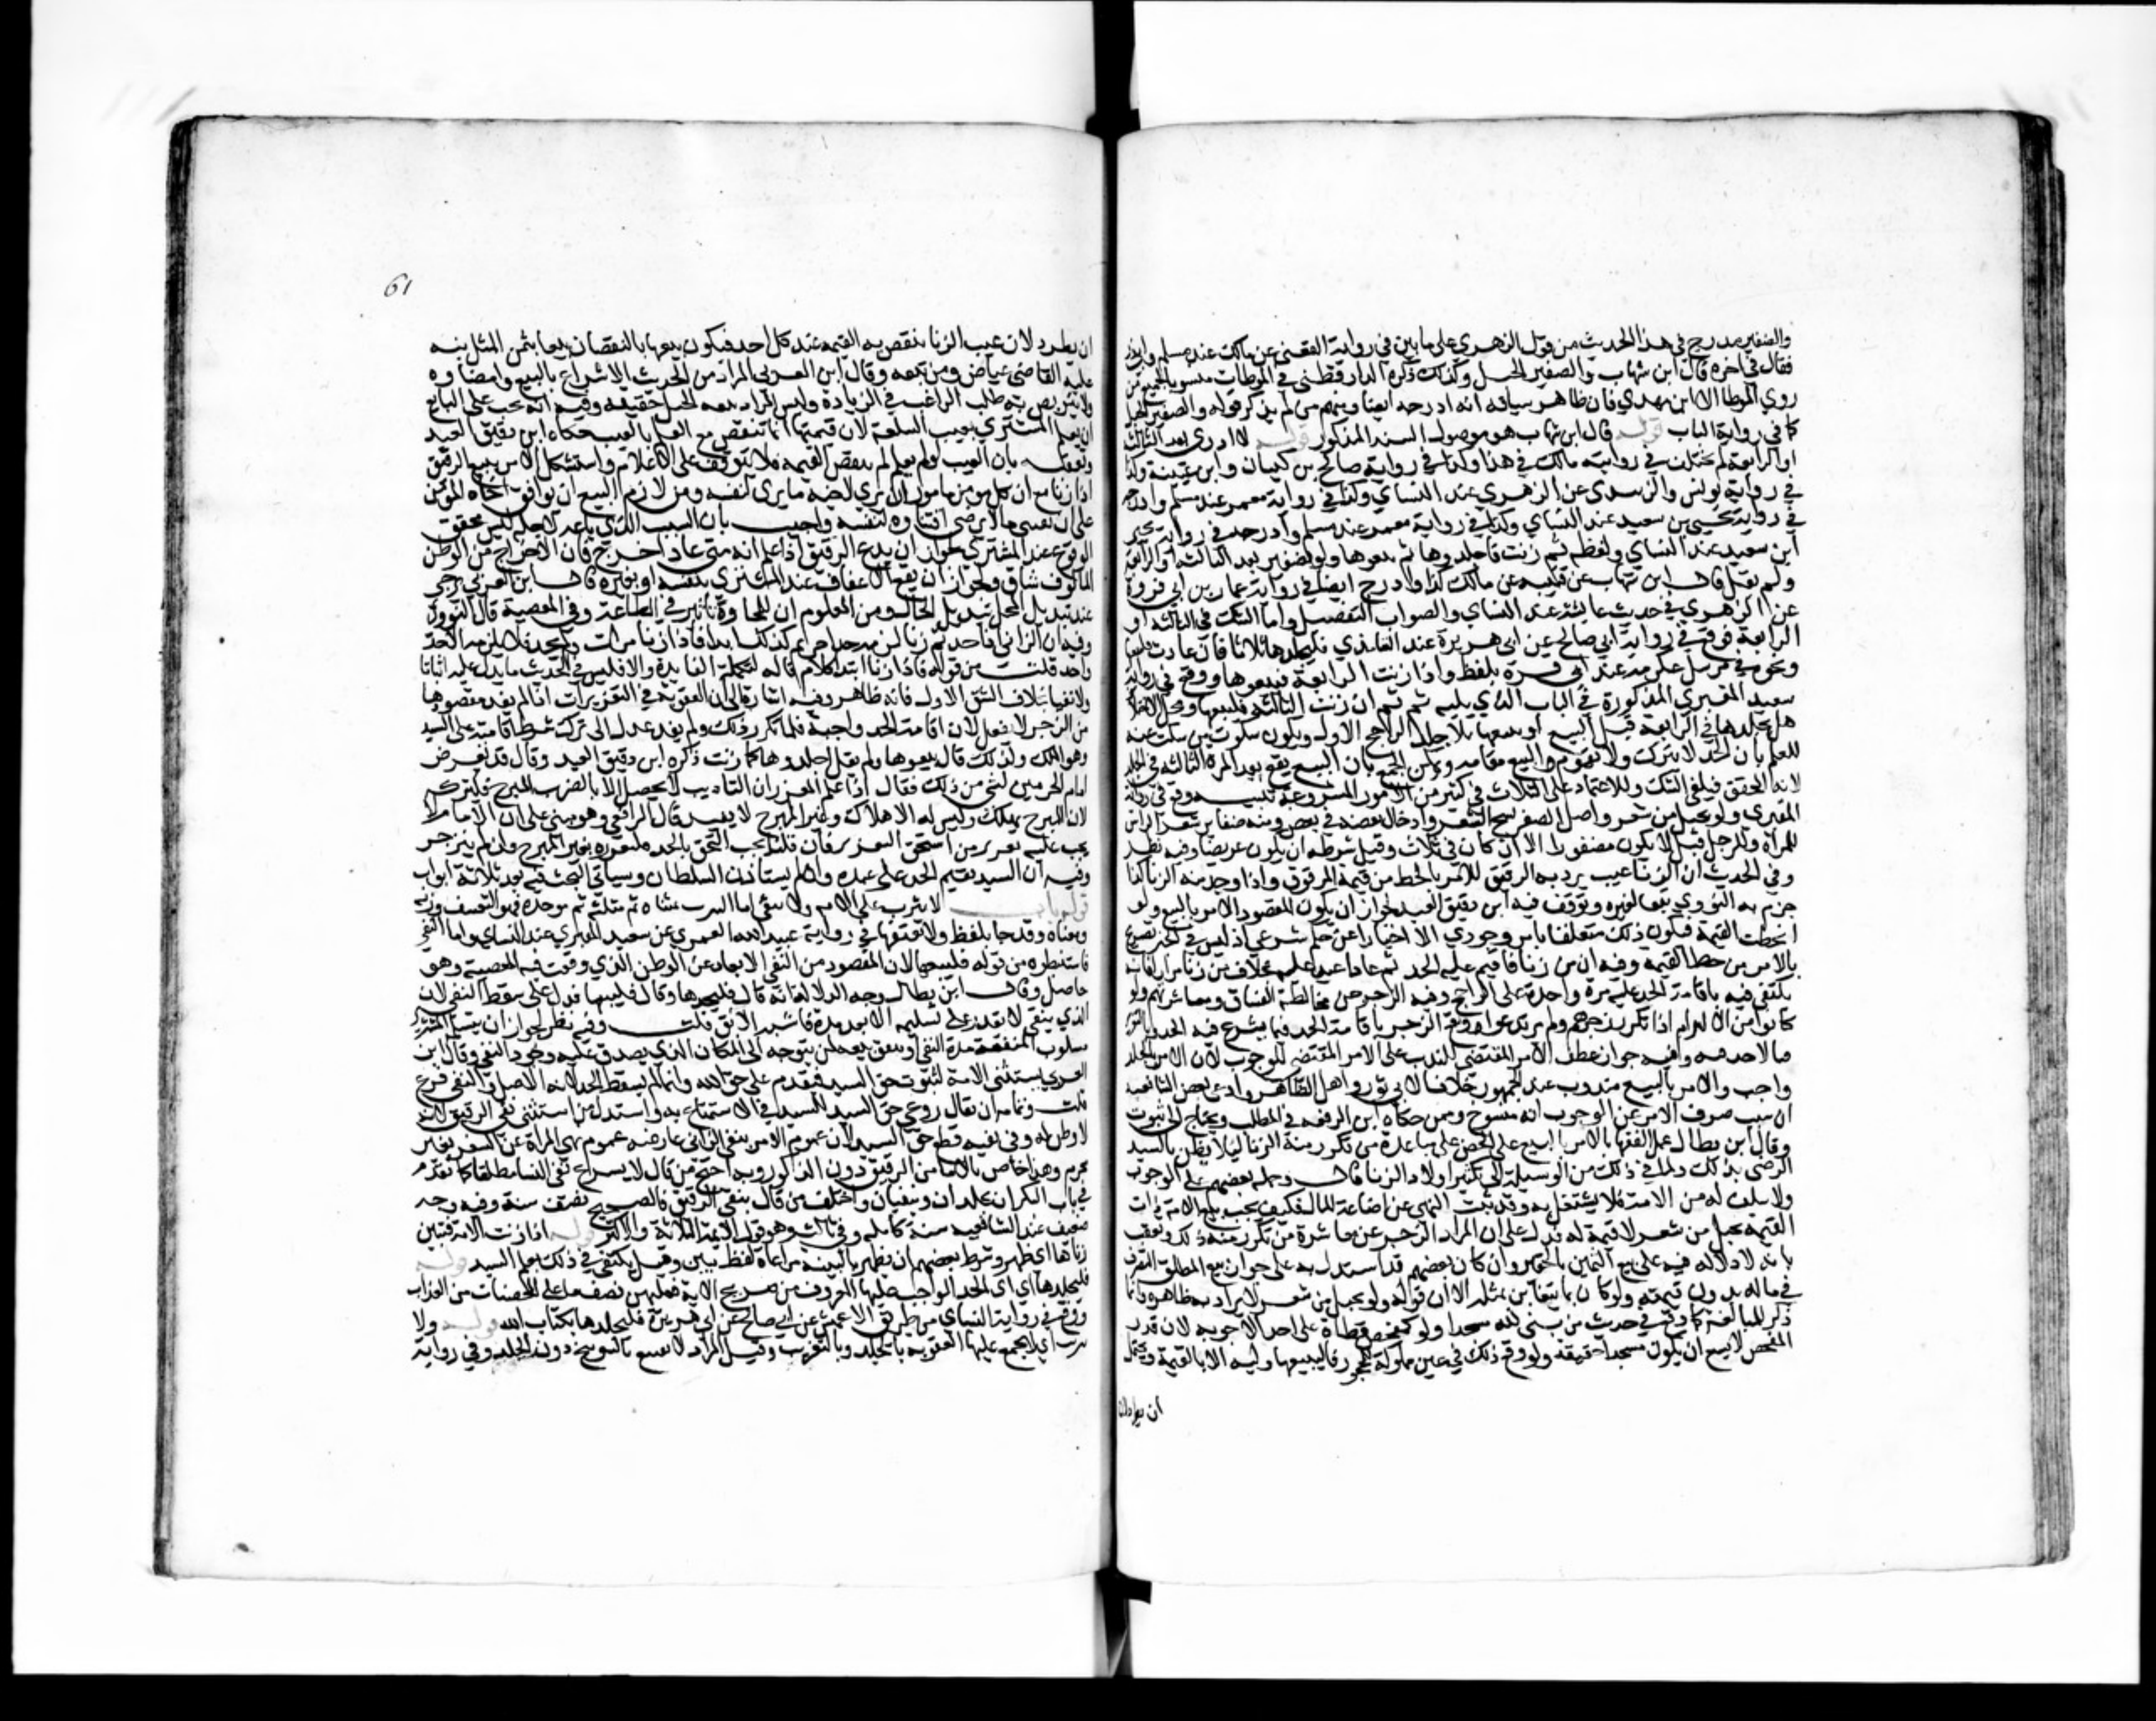 والضفير مدرج في هذا الحديث من قول الزهري على ما بين في رواية القعنبي عن مالك عند مسلم وابي داود
فقال في اخره قال ابن شهاب والضفير الحبل وكذلك ذكره الدارقطني في الموطات منسوبا لجميع من
روي الموطا الا ابن مهدي فان ظاهر سياقه انه ادرجه ايضا ومنهم من لم يذكر قوله والضفير الحبل
كما في رواية الباب قوله قال ابن شهاب هو موصول بالسند المذكور قوله لا ادري بعد الثالثة
او الرابعة لم يختلف في رواية مالك في هذا وكذا في رواية صالح بن كيسان وابن عيينة وكذا
في رواية يونس والزبيدي عن الزهري عند النساي وكذا في رواية معمر عند مسلم وادرجه
في رواية يحيى بن سعيد عند النساي وكذا في رواية معمر عند مسلم وادرجه في رواية يحيى
ابن سعيد عند النساي ولفظه ثم ان زنت فاجلدوها ثم بيعوها ولو بضفير بعد الثالثة او الرابعة
ولم يقل قال ابن شهاب وعن قتيبة عن مالك كذا وادرج ايضا في رواية عمار بن ابي فروة
عن الزهري في حديث عايشة عند النساي والصواب التفصيل واما الشك في الثالثة او
الرابعة فوقع في رواية ابي صالح عن ابي هريرة عند الترمذي فليجلدها ثلاثا فان عادت فليبعها
ونحوه في مرسل عكرمة عند ابي قرة بلفظ واذا زنت الرابعة فبيعوها ووقع في رواية
سعيد المقبري المذكورة في الباب الذي يليه ثم ان زنت الثالثة فليبعها ومحصل الاختلاف
هل يجلدها في الرابعة قبل البيع او يبيعها بلا جلد والراجح الاول ويكون سكوت من سكت عنه
للعلم بان الحد لا يترك ولا يقوم البيع مقامه ويمكن الجمع بان البيع يقع بعد المرة الثالثة في الجلد
لانه المحقق فيلغى الشك وللاعتماد على الثلاث في كثير من الامور المشروعة تنبيه وقع في رواية
المقبري ولو بحبل من شعر واصل الضفر نسج الشعر وادخال بعضه في بعض ومنه ضفاير شعر الراس
للمراة وللرجل قيل لا يكون مضفورا الا ان كان في ثلاث وقيل شرطه ان يكون عريضا وفيه نظر
وفي الحديث ان الزنا عيب يرد به الرقيق للامر بالحط من قيمة المرقوق واذا وجد منه الزنا كذا
جزم به النووي تبعا لغيره وتوقف فيه ابن دقيق العيد لجواز ان يكون المقصود الامر بالبيع ولو
انحطت القيمة فيكون ذلك متعلقا بامر وجودي لا اخبارا عن حكم شرعي اذ ليس في الخبر تصريح
بالامر من حط القيمة وفيه ان من زنا فاقيم عليه الحد ثم عاد اعيد عليه بخلاف من زنا مرارا فانه
يكتفى فيه باقامة الحد عليه مرة واحدة على الراجح وفيه الزجر عن مخالطة الفساق ومعاشرتهم ولو
كانوا من الالزام اذا تكرر زجرهم ولم يرتدعوا ويقع الزجر باقامة الحد فيما يشرع فيه الحد وبالتعزير
فيما لا حد فيه وفيه جواز عطف الامر المقتضي للندب على الامر المقتضي للوجوب لان الامر بالجلد
واجب والامر بالبيع مندوب عند الجمهور خلافا لابي ثور واهل الظاهر وادعى بعض الشافعية
ان سبب صرف الامر عن الوجوب انه منسوخ وممن حكاه ابن الرفعة في المطلب ويحتاج الى ثبوت
وقال ابن بطال حمل الفقها الامر بالبيع على الحض على مباعدة من تكرر منه الزنا ليلا يظن بالسيد
الرضى بذلك ولما في ذلك من الوسيلة الى تكثير اولاد الزنا قال وحمله بعضهم على الوجوب
ولا سلف له من الامة فلا يشتغل به وقد ثبت النهي عن اضاعة المال فكيف يجب بيع الامة ذات
القيمة بحبل من شعر لا قيمة له فدل على ان المراد الزجر عن معاشرة من تكرر منه ذلك وتعقب
بانه لا دلالة فيه على بيع الثمين بالحقير وان كان بعضهم قد استدل به على جواز بيع المطلق التصرف
في ماله بدون قيمته ولو كان بما يتغابن بمثله الا ان قوله ولو بحبل من شعر لا يراد به ظاهره وانما
ذكر للمبالغة كما وقع في حديث من بنى لله مسجدا ولو كمفحص قطاة على احد الاجوبة لان قدر
المفحص لا يسع ان يكون مسجدا حقيقة ولو وقع ذلك في عين مملوكة لمحجور فلا يبيعها وليه الا بالقيمة ويحتمل
ان يطرد لان
61
ان يطرد لان عيب الزنا تنقص به القيمة عند كل احد فيكون بيعها بالنقصان بيعا بثمن المثل نبه
عليه القاضي عياض ومن تبعه وقال ابن العربي المراد من الحديث الاسراع بالبيع وامضاوه
ولا يتربص به طلب الراغب في الزيادة وليس المراد بيعه لحبل حقيقة وفيه انه يجب على البايع
ان يعلم المشتري بعيب السلعة لان قيمتها انما تنقص مع العلم بالعيب حكاه ابن دقيق العيد
وتعقبه بان العيب لو لم يعلم لم تنقص القيمة فلا يتوقف على الاعلام واستشكل الامر ببيع الرقيق
اذا زنا مع ان كل مومن مامور ان يرى لاخيه ما يرى لنفسه ومن لازم البيع ان يوافق اخاه المومن
على ان يقتني ما لا يرضى اقتناوه لنفسه واجيب بان السبب الذي باعه لاجله ليس محقق
الوقوع عند المشتري لجواز ان يدع الرقيق اذا علم انه متى عاد اخرج فان الاخراج من الوطن
المالوف شاق ولجواز ان يقع الاعفاف عند المشتري بنفسه او بغيره قال ابن العربي يرجى
عند تبديل المحل تبديل الحال ومن المعلوم ان للمجاورة تاثيرا في الطاعة وفي المعصية قال النووي
وفيه ان الزاني اذا حد ثم زنا لزمه حد اخر ثم كذلك ابدا فاذا زنا مرات ولم يحد فلا يلزمه الا حد
واحد قلت من قوله فاذا زنا ابتدا كلام قاله لتكملة الفايدة والا فليس في الحديث ما يدل عليه اثباتا
ولا نفيا بخلاف الشق الاول فانه ظاهر وفيه اشارة الى ان العقوبة في التعزيرات اذا لم يفد مقصودها
من الزجر لا يفعل لان اقامة الحد واجبة فلما تكرر ذلك ولم يفد عدل الى ترك شرط اقامته على السيد
وهو الملك ولذلك قال بيعوها ولم يقل اجلدوها كلما زنت ذكره ابن دقيق العيد وقال قد تعرض
امام الحرمين لشي من ذلك فقال اذا علم المعزر ان التاديب لا يحصل الا بالضرب المبرح فليتركه
لان المبرح يهلك وليس له الاهلاك وغير المبرح لا يفيد قال الرافعي وهو مبني على ان الامام لا
يجب عليه تعزير من استحق التعزير فان قلنا يجب التحق بالحد فليعزره بغير المبرح وان لم ينزجر
وفيه ان السيد يقيم الحد على عبده وان لم يستاذن السلطان وسياتي البحث فيه بعد ثلاثة ابواب
قوله باب لا يثرب على الامة ولا تنفى اما التثريب بمثناة ثم مثلثة ثم موحدة فهو التعنيف وزنه
ومعناه وقد جا بلفظ ولا يعنفها في رواية عبيد الله العمري عن سعيد المقبري عند النساي واما النفي
فاستنبطه من قوله فليبعها لان المقصود من النفي الابعاد عن الوطن الذي وقعت فيه المعصية وهو
حاصل وقال ابن بطال وجه الدلالة انه قال فليجلدها وقال فليبعها فدل على سقوط النفي لان
الذي ينفى لا يقدر على تسليمه الا بعد مدة فاشبه الابق قلت وفيه نظر لجواز ان يتسلمه المشتري
مسلوب المنفعة مدة النفي او يتفق بيعه لمن يتوجه الى المكان الذي يصدق عليه وجود النفي وقال ابن
العربي يستثنى الامة لثبوت حق السيد فيقدم على حق الله وانما لم يسقط الحد لانه الاصل والنفي فرع
قلت وتمامه ان يقال روعي حق السيد للسيد في الاستمتاع به واستدل من استثنى نفي الرقيق لانه
لا وطن له وفي نفيه قطع حق السيد لان عموم الامر بنفي الزاني عارضه عموم نهي المراة عن السفر بغير
محرم وهذا خاص بالاما من الرقيق دون الذكور وبه احتج من قال لا يشرع نفي النسا مطلقا كما تقدم
في باب البكران يجلدان وينفيان واختلف من قال بنفي الرقيق فالصحيح نصف سنة وفيه وجه
ضعيف عند الشافعية سنة كاملة وفي ثالث وهو قول الايمة الثلاثة والاكثر قوله اذا زنت الامة فتبين
زناها اي ظهر وشرط بعضهم ان يظهر بالبينة مراعاة للفظ تبين وقيل يكتفى في ذلك بعلم السيد قوله
فليجلدها اي الحد الواجب عليها المعروف من صريح الاية فعليهن نصف ما على المحصنات من العذاب
ووقع في رواية النساي من طريق الاعمش عن ابي صالح عن ابي هريرة فليجلدها بكتاب الله قوله ولا
يثرب اي لا يجمع عليها العقوبة بالجلد وبالتعزير وقيل المراد لا يقنع بالتوبيخ دون الجلد وفي رواية